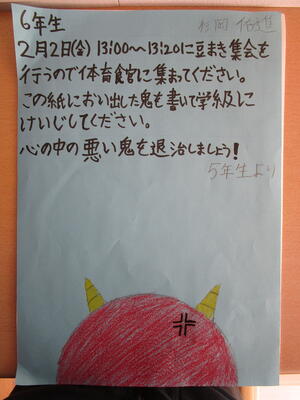 6年生
2月2日(金) 13:00〜13:20に豆まき集会を
行うので体育館に集まってください。
この紙においだした鬼を書いて学級に
けいじしてください。
心の中の悪い鬼を退治しましょう!
5年生より